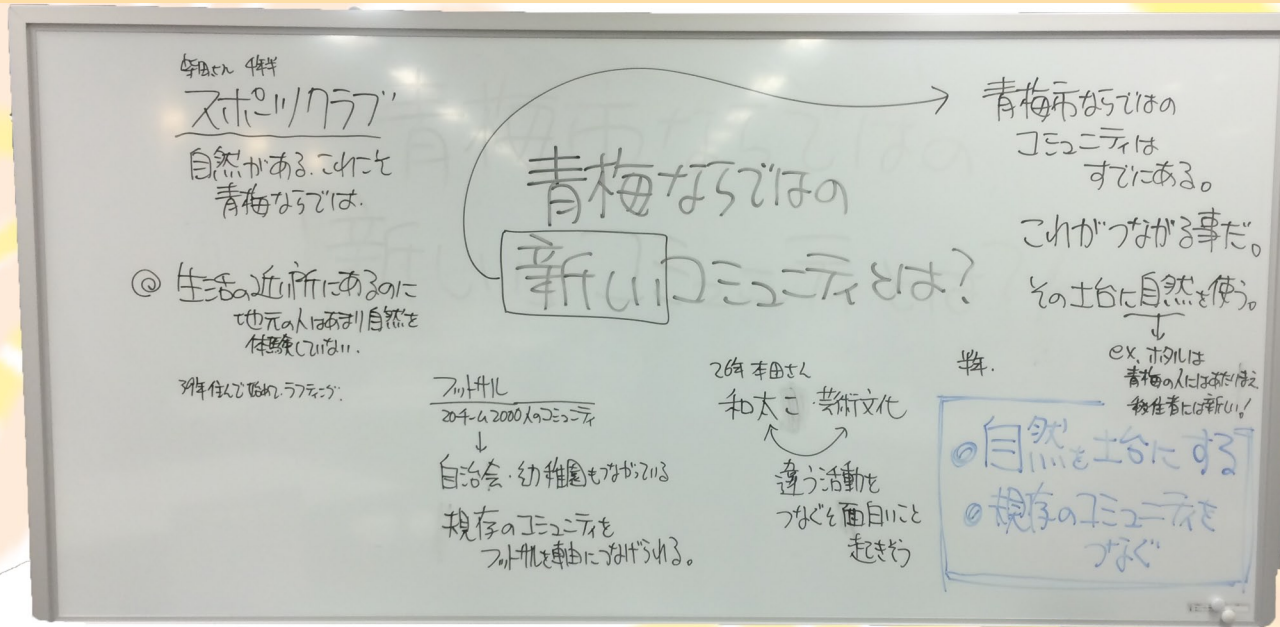 4年半
スポーツクラブ
自然がある.これこそ
青梅ならでは.
@ 生活の近所にあるのに
地元の人はあまり自然を
体験していない.
39年住んで始めて.ラフティング.
青梅ならではの
新しいコミュニティとは?
フットサル
20チーム2000人のコミュニティ
↓
自治会・幼稚園もつながっている
規存のコミュニティを
フットサルを軸につなげられる。
26年 本田さん
和太こ・芸術文化
違う活動を
つなぐそ面白いこと
起きそう
青梅市ならではの
コミュニティは
すでにある。
これがつながる事だ。
その土台に自然を使う。
↓
ex. ホタルは
青梅の人にはあたりまえ
移住者には新しい!
半年.
◎自然を土台にする
◎規存のコミュニティを
つなぐ